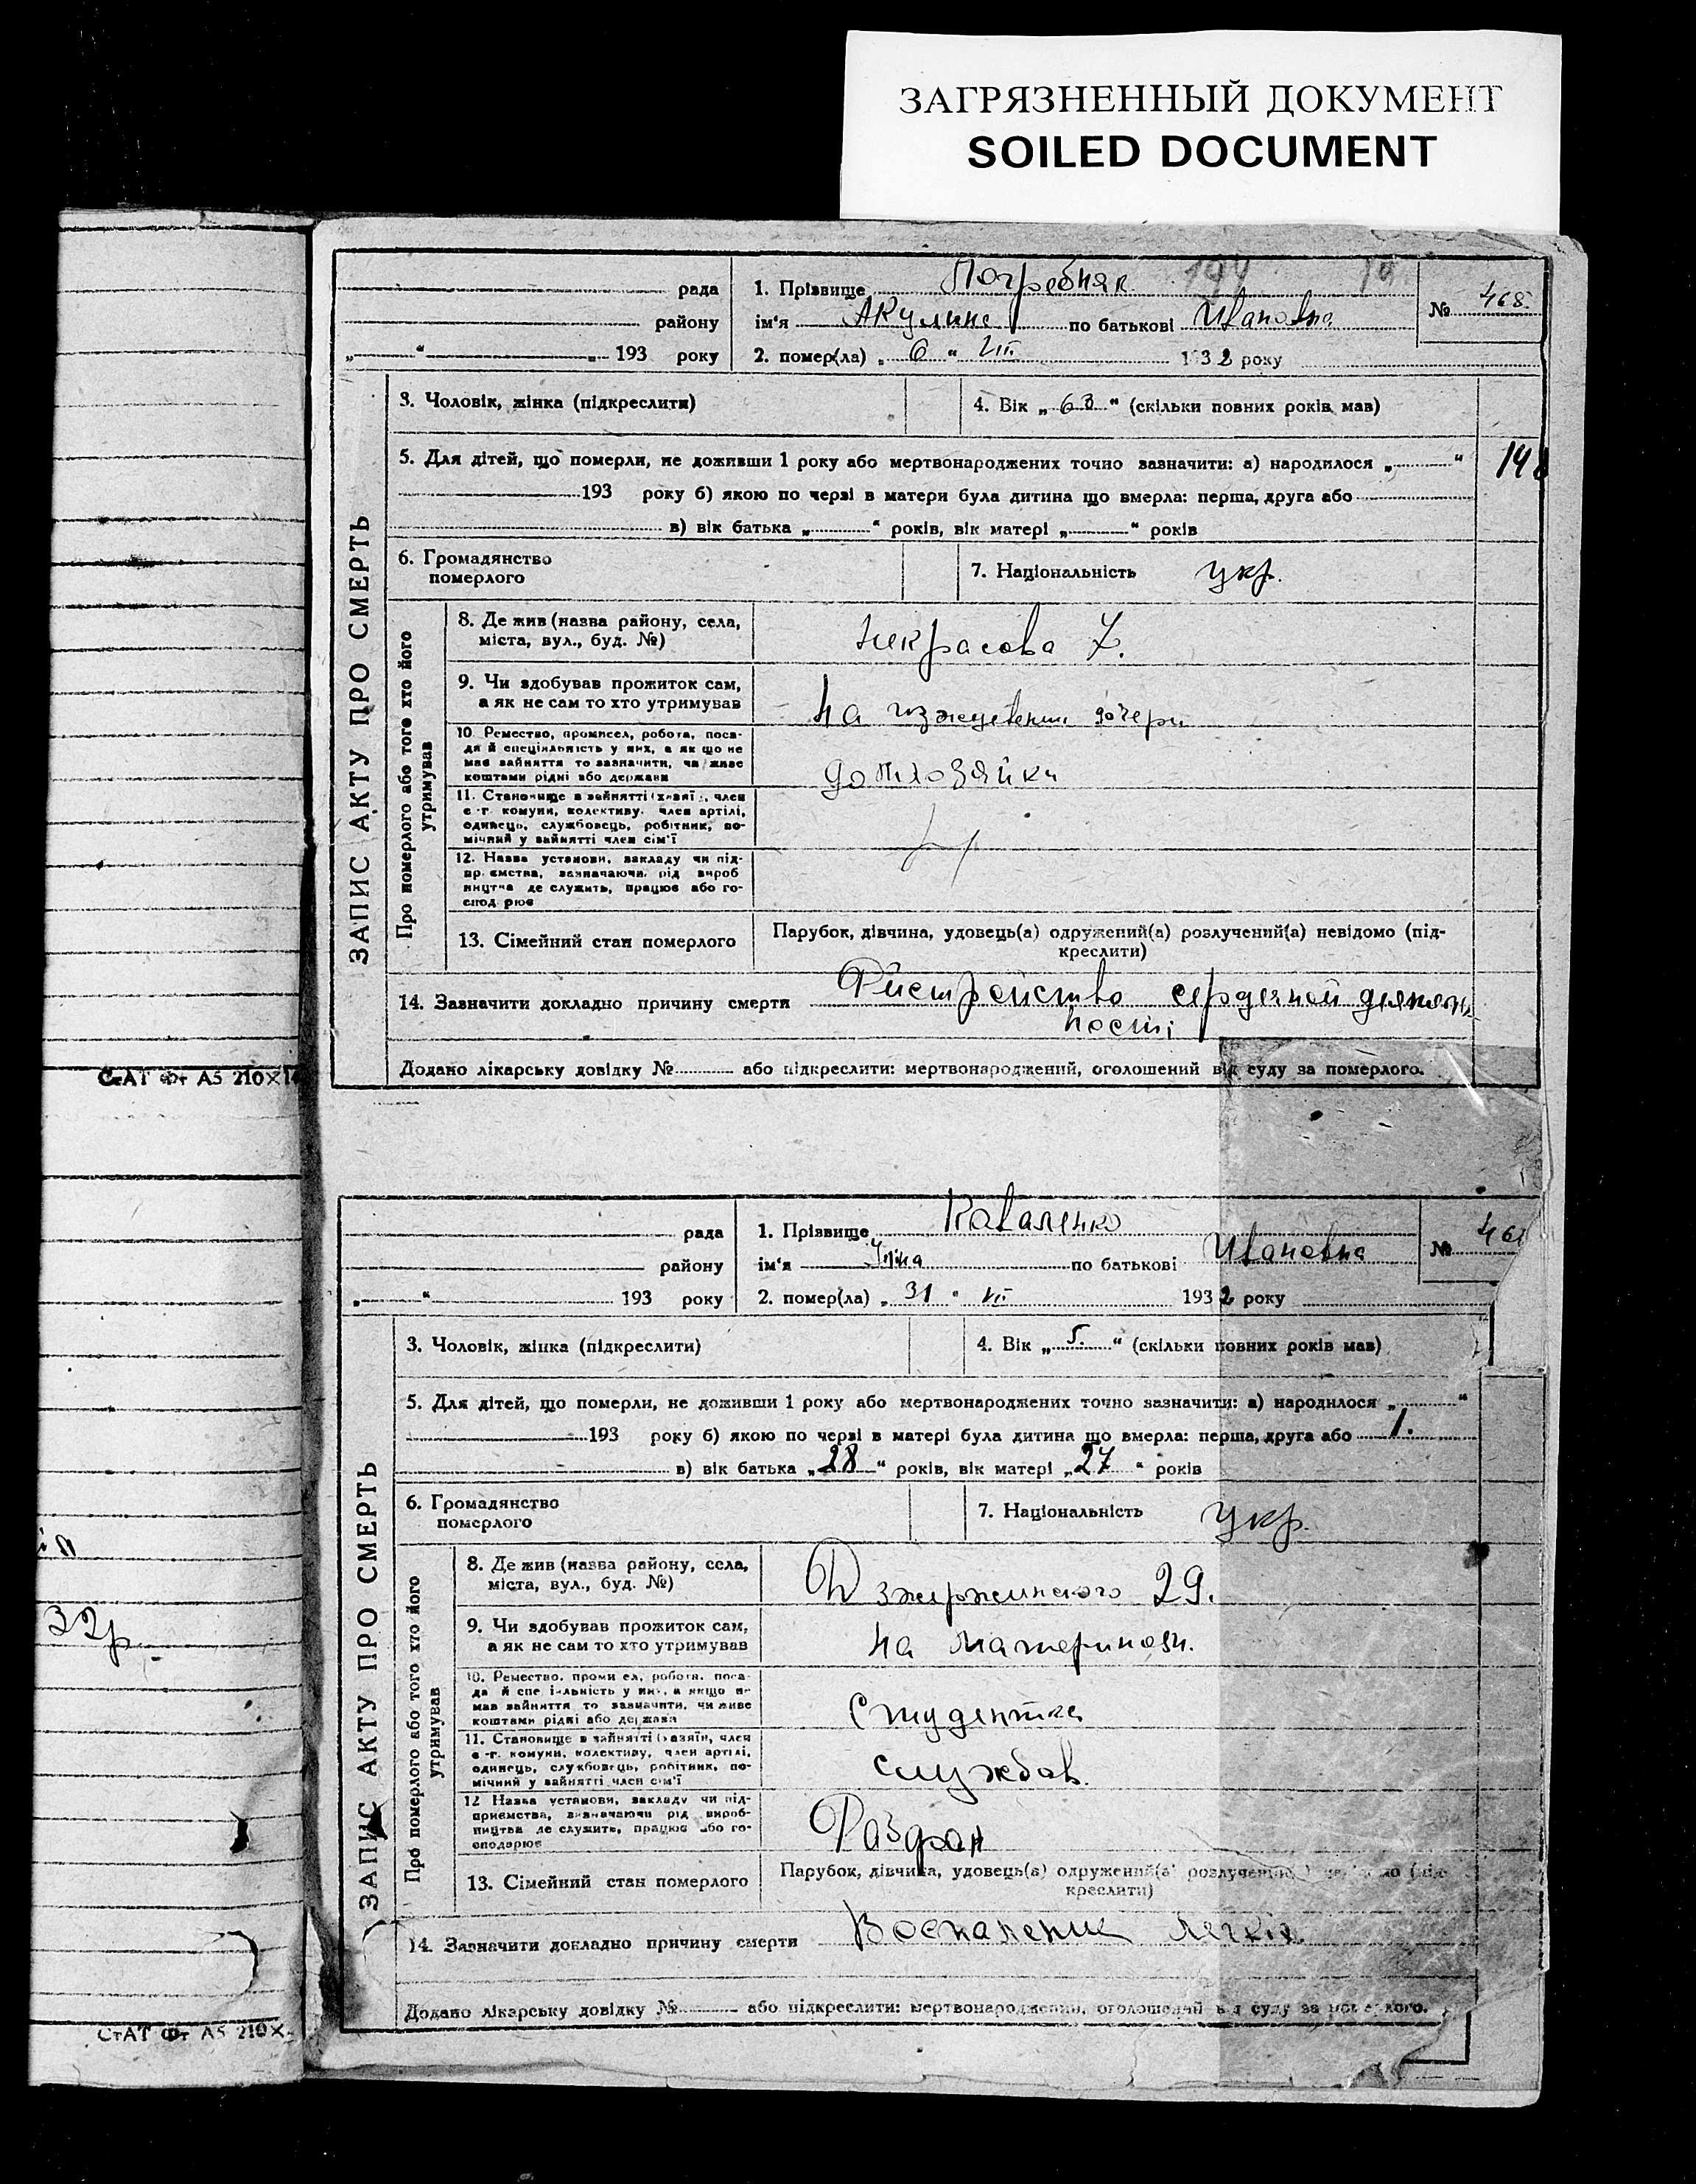 ЗАГРЯЗНЕННЫЙ ДОКУМЕНТ
SOILED DOCUMENT
рада
району
„ “ 193 року
1. Прізвище Погребняк
ім'я Акулина по батькові Ивановна
2. помер(ла) „ 6 “ VIII 1932 року
№ 468
ЗАПИС АКТУ ПРО СМЕРТЬ
3. Чоловік, жінка (підкреслити)
4. Вік „ 63 “ (скільки повних років мав)
5. Для дітей, що померли, не доживши 1 року або мертвонароджених точно зазначити: а) народилося „ “
193 року б) якою по черзі в матери була дитина що вмерла: перша, друга або
в) вік батька „ “ років, вік матері „ “ років
6. Громадянство
померлого
7. Національність укр.
Про померлого або того хто його
утримував
8. Де жив (назва району, села,
міста, вул., буд. №)
Некрасова 7.
9. Чи здобував прожиток сам,
а як не сам то хто утримував
на иждевении дочери
10. Ремество, промисел, робота, поса-
да й спеціяльність у них, а як що не
мав зайняття то зазначити, чи живе
коштами рідні або держави
домхозяйка
11. Становище в зайнятті (хазяї , член
с.-г. комуни, колективу, член артілі,
одинець, службовець, робітник, по-
мічний у зайнятті член сім'ї
12. Назва установи, закладу чи під-
пр ємства, зазначаючи рід вироб
ництва де служить, працює або го-
спод рює
13. Сімейний стан померлого
Парубок, дівчина, удовець(а) одружений(а) розлучений(а) невідомо (під-
креслити)
14. Зазначити докладно причину смерти сердечной деятель
ности
Додано лікарську довідку № або підкреслити: мертвонароджений, оголошений від суду за померлого.
СтАТ Фт А5 210×14
рада
району
„ “ 193 року
1. Прізвище Коваленко
ім'я Інна по батькові Ивановна
2. помер(ла) „ 31 “ VII 1932 року
№ 46
ЗАПИС АКТУ ПРО СМЕРТЬ
3. Чоловік, жінка (підкреслити)
4. Вік „ 5. “ (скільки повних років мав)
5. Для дітей, що померли, не доживши 1 року або мертвонароджених точно зазначити: а) народилося „ “
193 року б) якою по черзі в матері була дитина що вмерла: перша, друга або 1.
в) вік батька „ 28 “ років, вік матері „ 27 “ років
6. Громадянство
померлого
7. Національність укр.
Про померлого або того хто його
утримував
8. Де жив (назва району, села,
міста, вул., буд. №)
Дзержинского 29.
9. Чи здобував прожиток сам,
а як не сам то хто утримував
на
10. Ремество, проми ел, робота, поса-
да й спе іальність у них, а якщо не
мав зайняття то зазначити, чи живе
коштами рідні або держави
Студентка
11. Становище в зайнятті (хазяїн, член
с.-г. комуни, колективу, член артілі,
одинець, службовець, робітник, по-
мічний у зайнятті член сім'ї
службов.
12 Назва установи, закладу чи під-
приємства, зазначаючи рід вироб-
ництва де служить, працює або го-
сподарює
13. Сімейний стан померлого
Парубок, дівчина, удовець(а) одружений(а) розлучений
креслити)
14. Зазначити докладно причину смерти Воспаление легких
Додано лікарську довідку № або підкреслити: мертвонароджений, оголошений від суду за померлого.
32р.
СтАТ Фт А5 210×